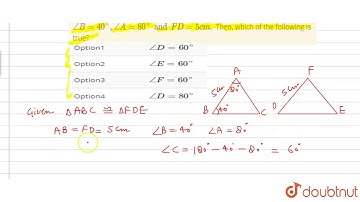 ∠B = 40°, ∠A = 80° and FD = 5cm. Then, which of the following is
true?
Option1 ∠D = 60°
Option2 ∠E = 60°
Option3 ∠F = 60°
Option4 ∠D = 80°
A F
5cm 80° 5cm
B 40° C D E
Given △ABC ≅ △FDE
AB = FD = 5cm ∠B = 40° ∠A = 80°
∠C = 180° - 40° - 80° = 60°
doubtnut